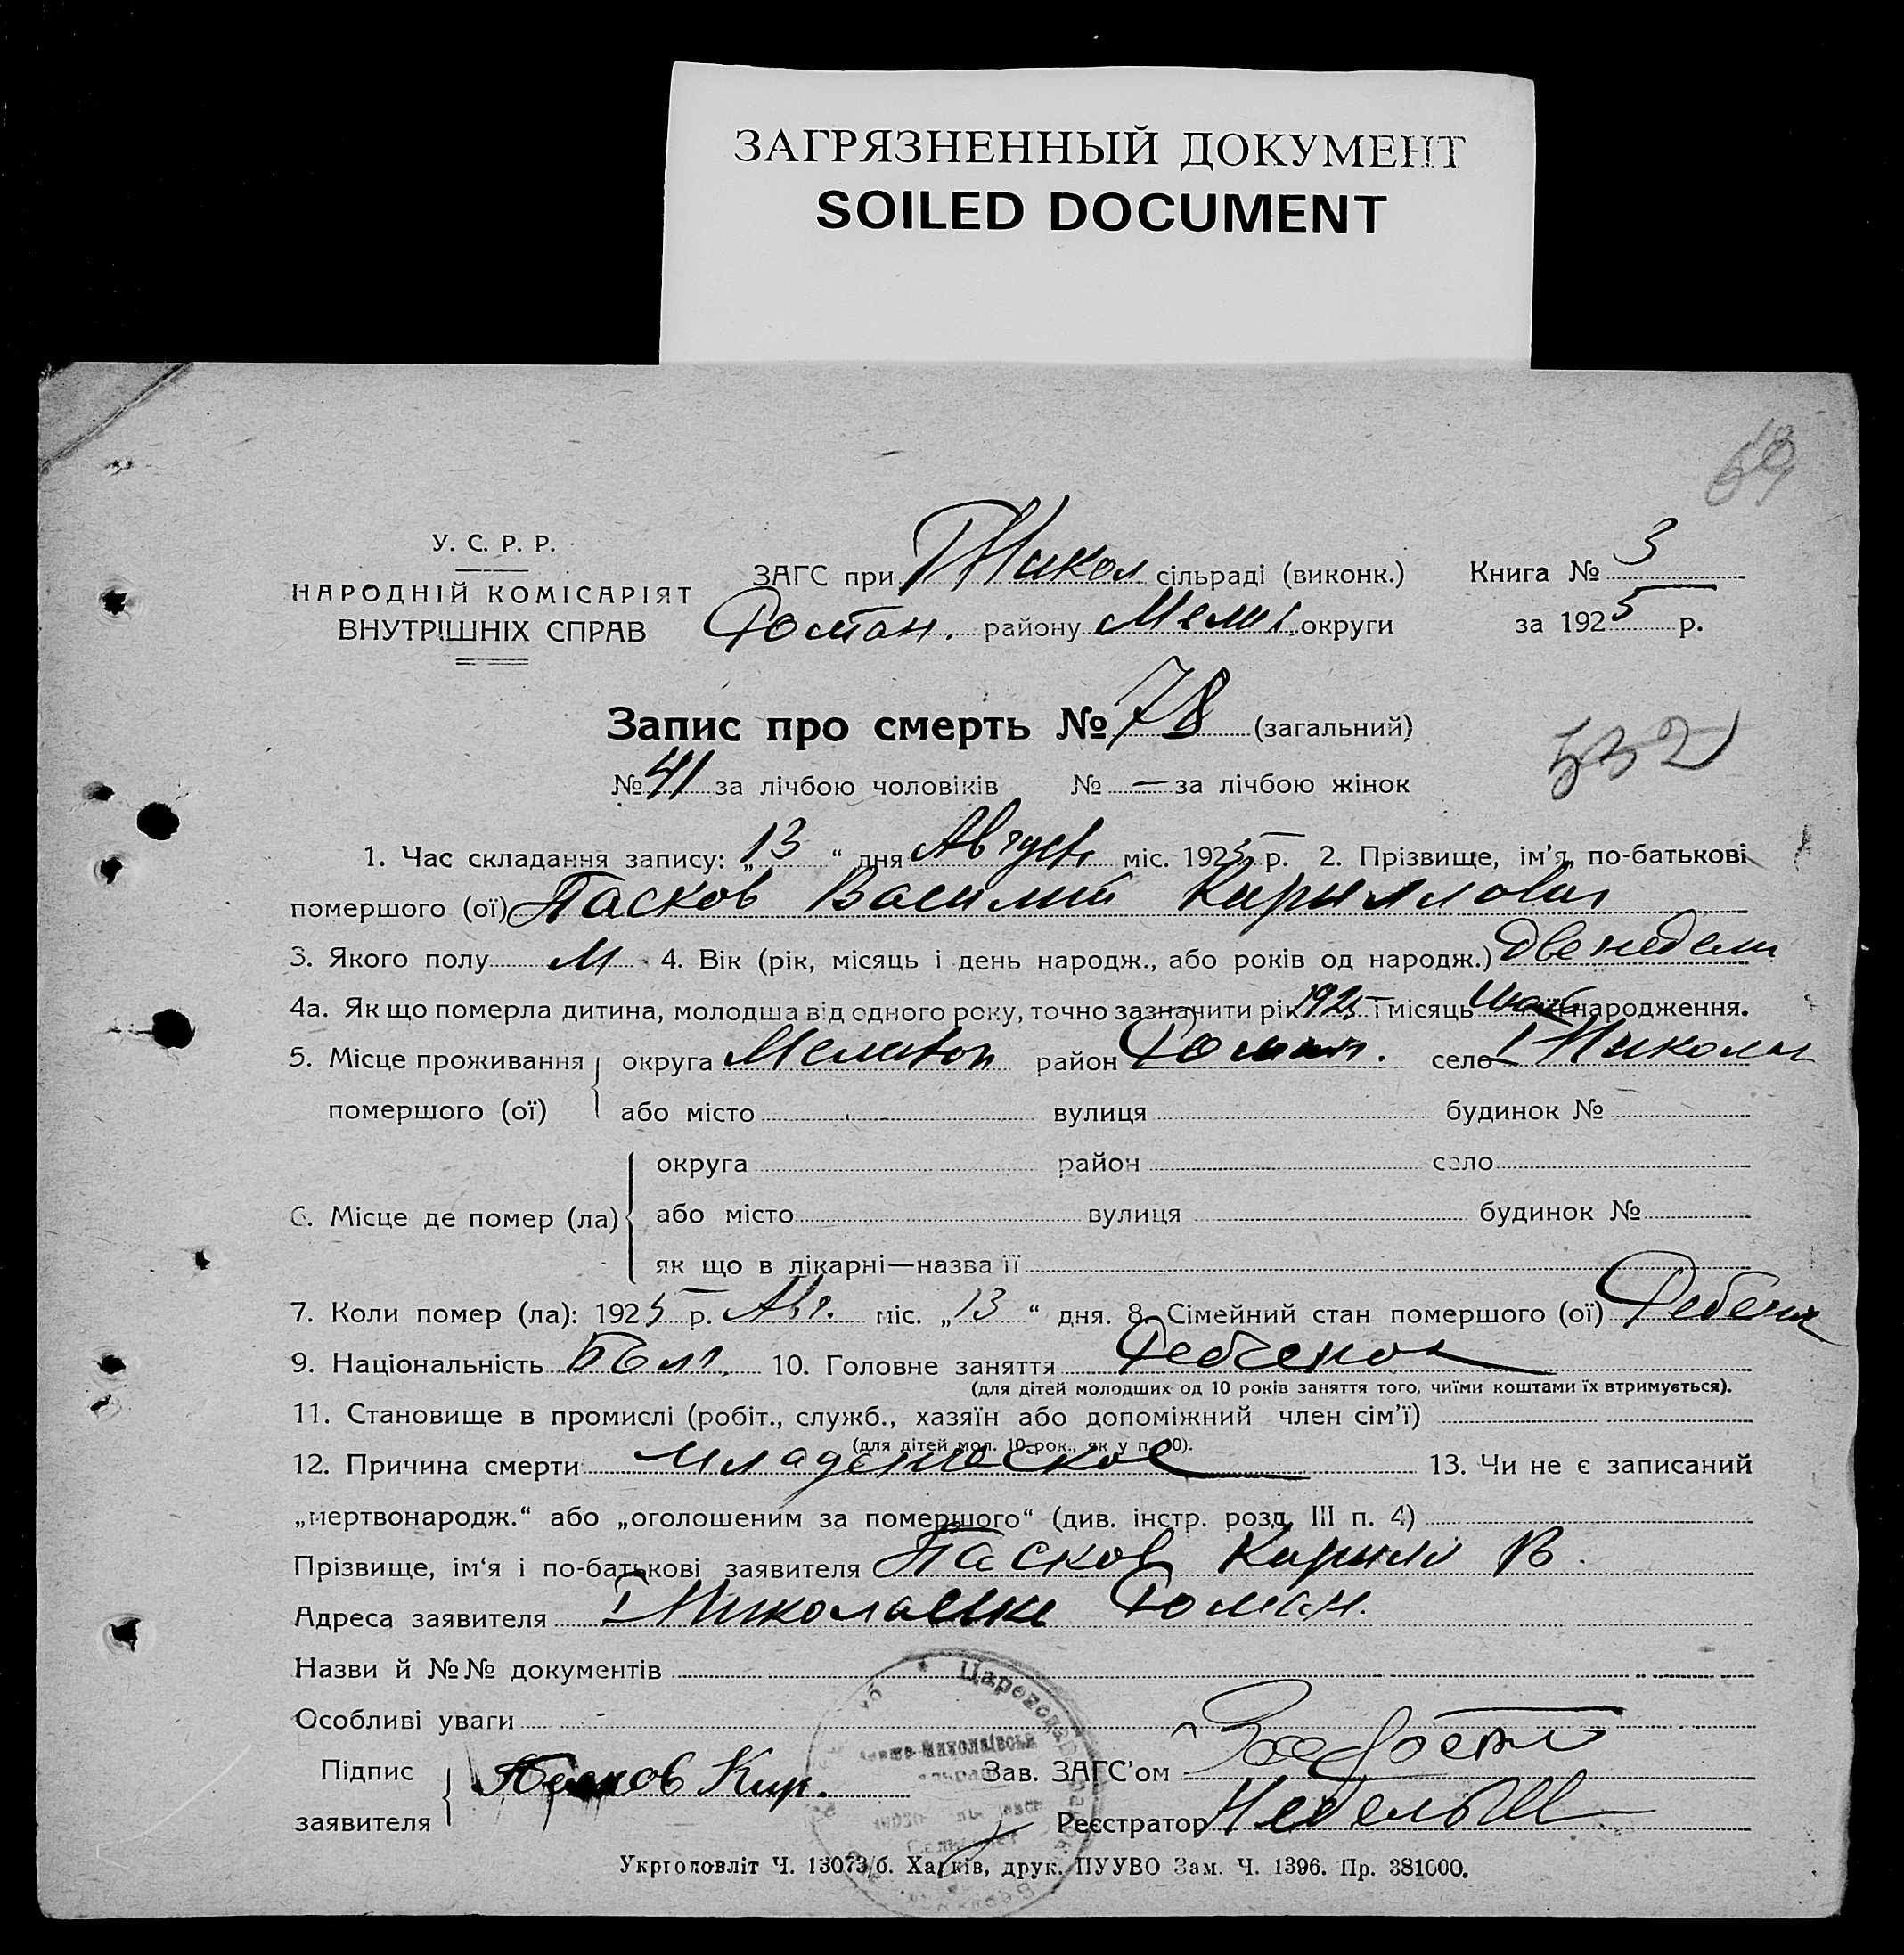 ЗАГРЯЗНЕННЫЙ ДОКУМЕНТ
SOILED DOCUMENT
У. С. Р. Р.
НАРОДНІЙ КОМІСАРІЯТ
ВНУТРІШНІХ СПРАВ
ЗАГС при I Никол сільраді (виконк.)
Роман. району Мелит. округи
Книга № 3
за 1925 р.
Запис про смерть № 78 (загальний)
№ 41 за лічбою чоловіків № — за лічбою жінок
532
1. Час складання запису: „13“ дня Август міс. 1925 р. 2. Прізвище, ім'я, по-батькові
помершого (ої) Пасков Василий Кириллович
3. Якого полу М 4. Вік (рік, місяць і день народж., або років од народж.) две недели
4а. Як що померла дитина, молодша від одного року, точно зазначити рік 1925 і місяць її народження.
5. Місце проживання помершого (ої) округа Мелитоп район Роман. село I Николаев
або місто вулиця будинок №
6. Місце де помер (ла) округа район село
або місто вулиця будинок №
як що в лікарні—назва її
7. Коли помер (ла): 1925 р. Авг. міс. „13“ дня. 8. Сімейний стан помершого (ої) Ребенок
9. Національність Болг. 10. Головне заняття Ребенок
(для дітей молодших од 10 років заняття того, чиїми коштами їх втримується).
11. Становище в промислі (робіт., служб., хазяїн або допоміжний член сім'ї)
(для дітей мол. 10 рок., як у п. 10).
12. Причина смерти младенческое 13. Чи не є записаний
„мертвонародж.“ або „оголошеним за помершого“ (див. інстр. розд. III п. 4)
Прізвище, ім'я і по-батькові заявителя Пасков Кирилл В.
Адреса заявителя I Николаевке Роман.
Назви й №№ документів
Особливі уваги
Підпис заявителя Пасков Кир.
Зав. ЗАГС'ом
Реєстратор
Укрголовліт Ч. 13073/б. Харків, друк. ПУУВО Зам. Ч. 1396. Пр. 381000.